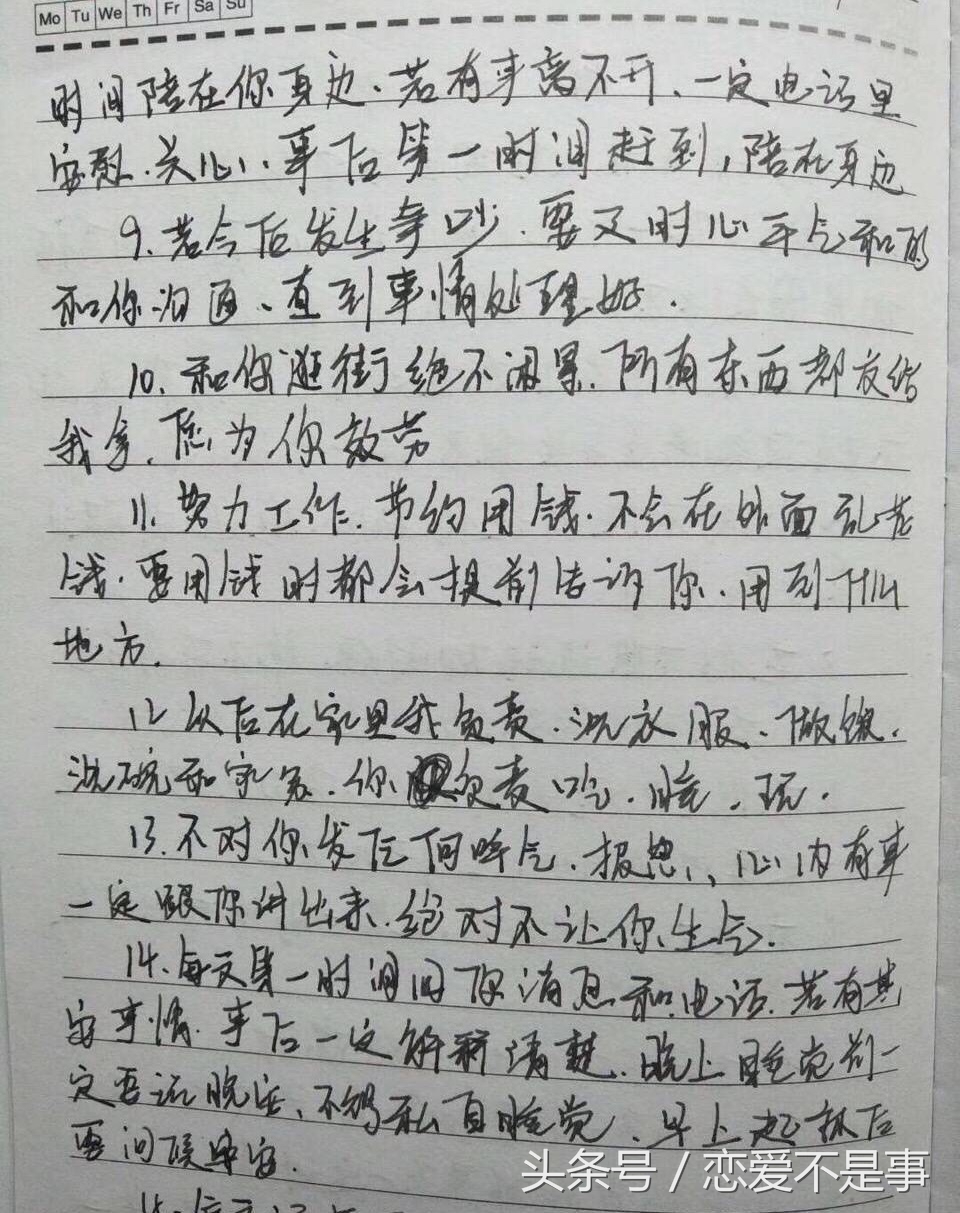 Mo Tu We Th Fr Sa Su
时间陪在你身边、若有事离不开、一定电话里
安慰、关心、事后第一时间赶到，陪在身边
9、若今后发生争吵、要及时心平气和的
和你沟通、直到事情处理好.
10、和你逛街绝不闲累、所有东西都交给
我拿、愿为你效劳
11、努力工作、节约用钱、不会在外面乱花
钱、要用钱时都会提前告诉你、用到什么
地方.
12 以后在家里我负责、洗衣服、做饭、
洗碗和家务、你负责吃、睡、玩.
13、不对你发任何脾气、报怨、心内有事
一定跟你讲出来、绝对不让你生气.
14、每天第一时间回你消息和电话、若有其
安事情、事后一定解释清楚、晚上睡觉前一
定要说晚安、不能私自睡觉、早上起床后
要问候早安.
15、
头条号 / 恋爱不是事